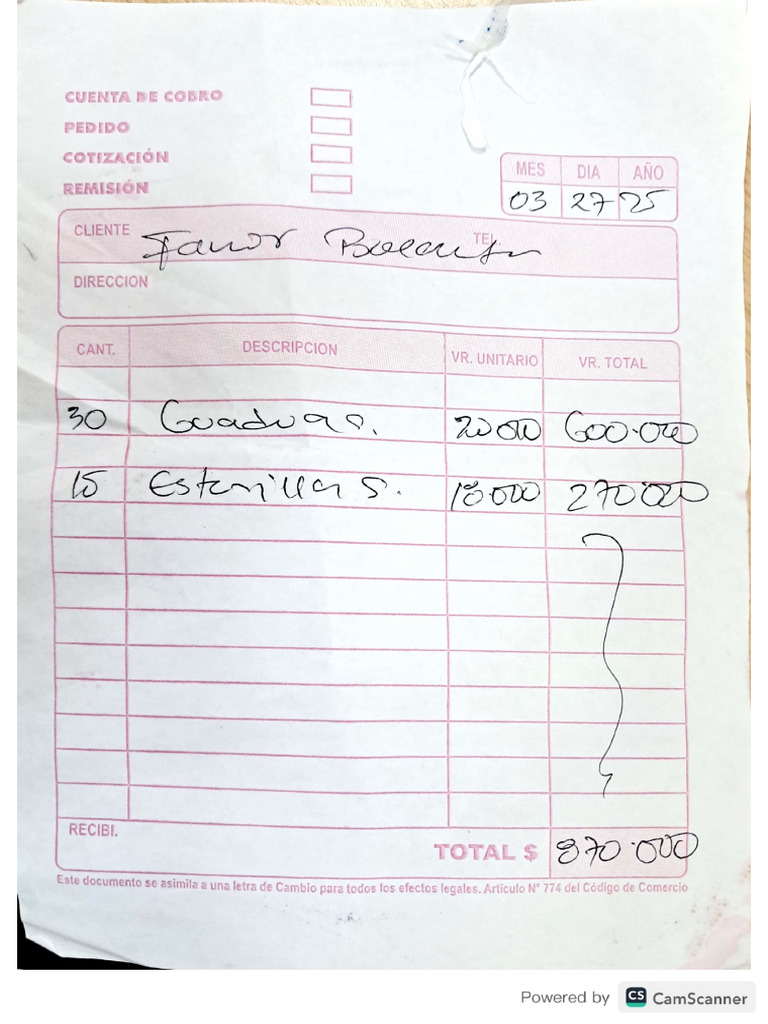 CUENTA DE COBRO
PEDIDO
COTIZACIÓN
REMISIÓN
MES DIA AÑO
03 27 25
CLIENTE TEL
DIRECCION
CANT. DESCRIPCION VR. UNITARIO VR. TOTAL
30 Guaduas. 20.000 600.000
15 Esterillas. 18.000 270.000
RECIBI.
TOTAL $ 870.000
Este documento se asimila a una letra de Cambio para todos los efectos legales. Articulo N° 774 del Código de Comercio
Powered by CS CamScanner